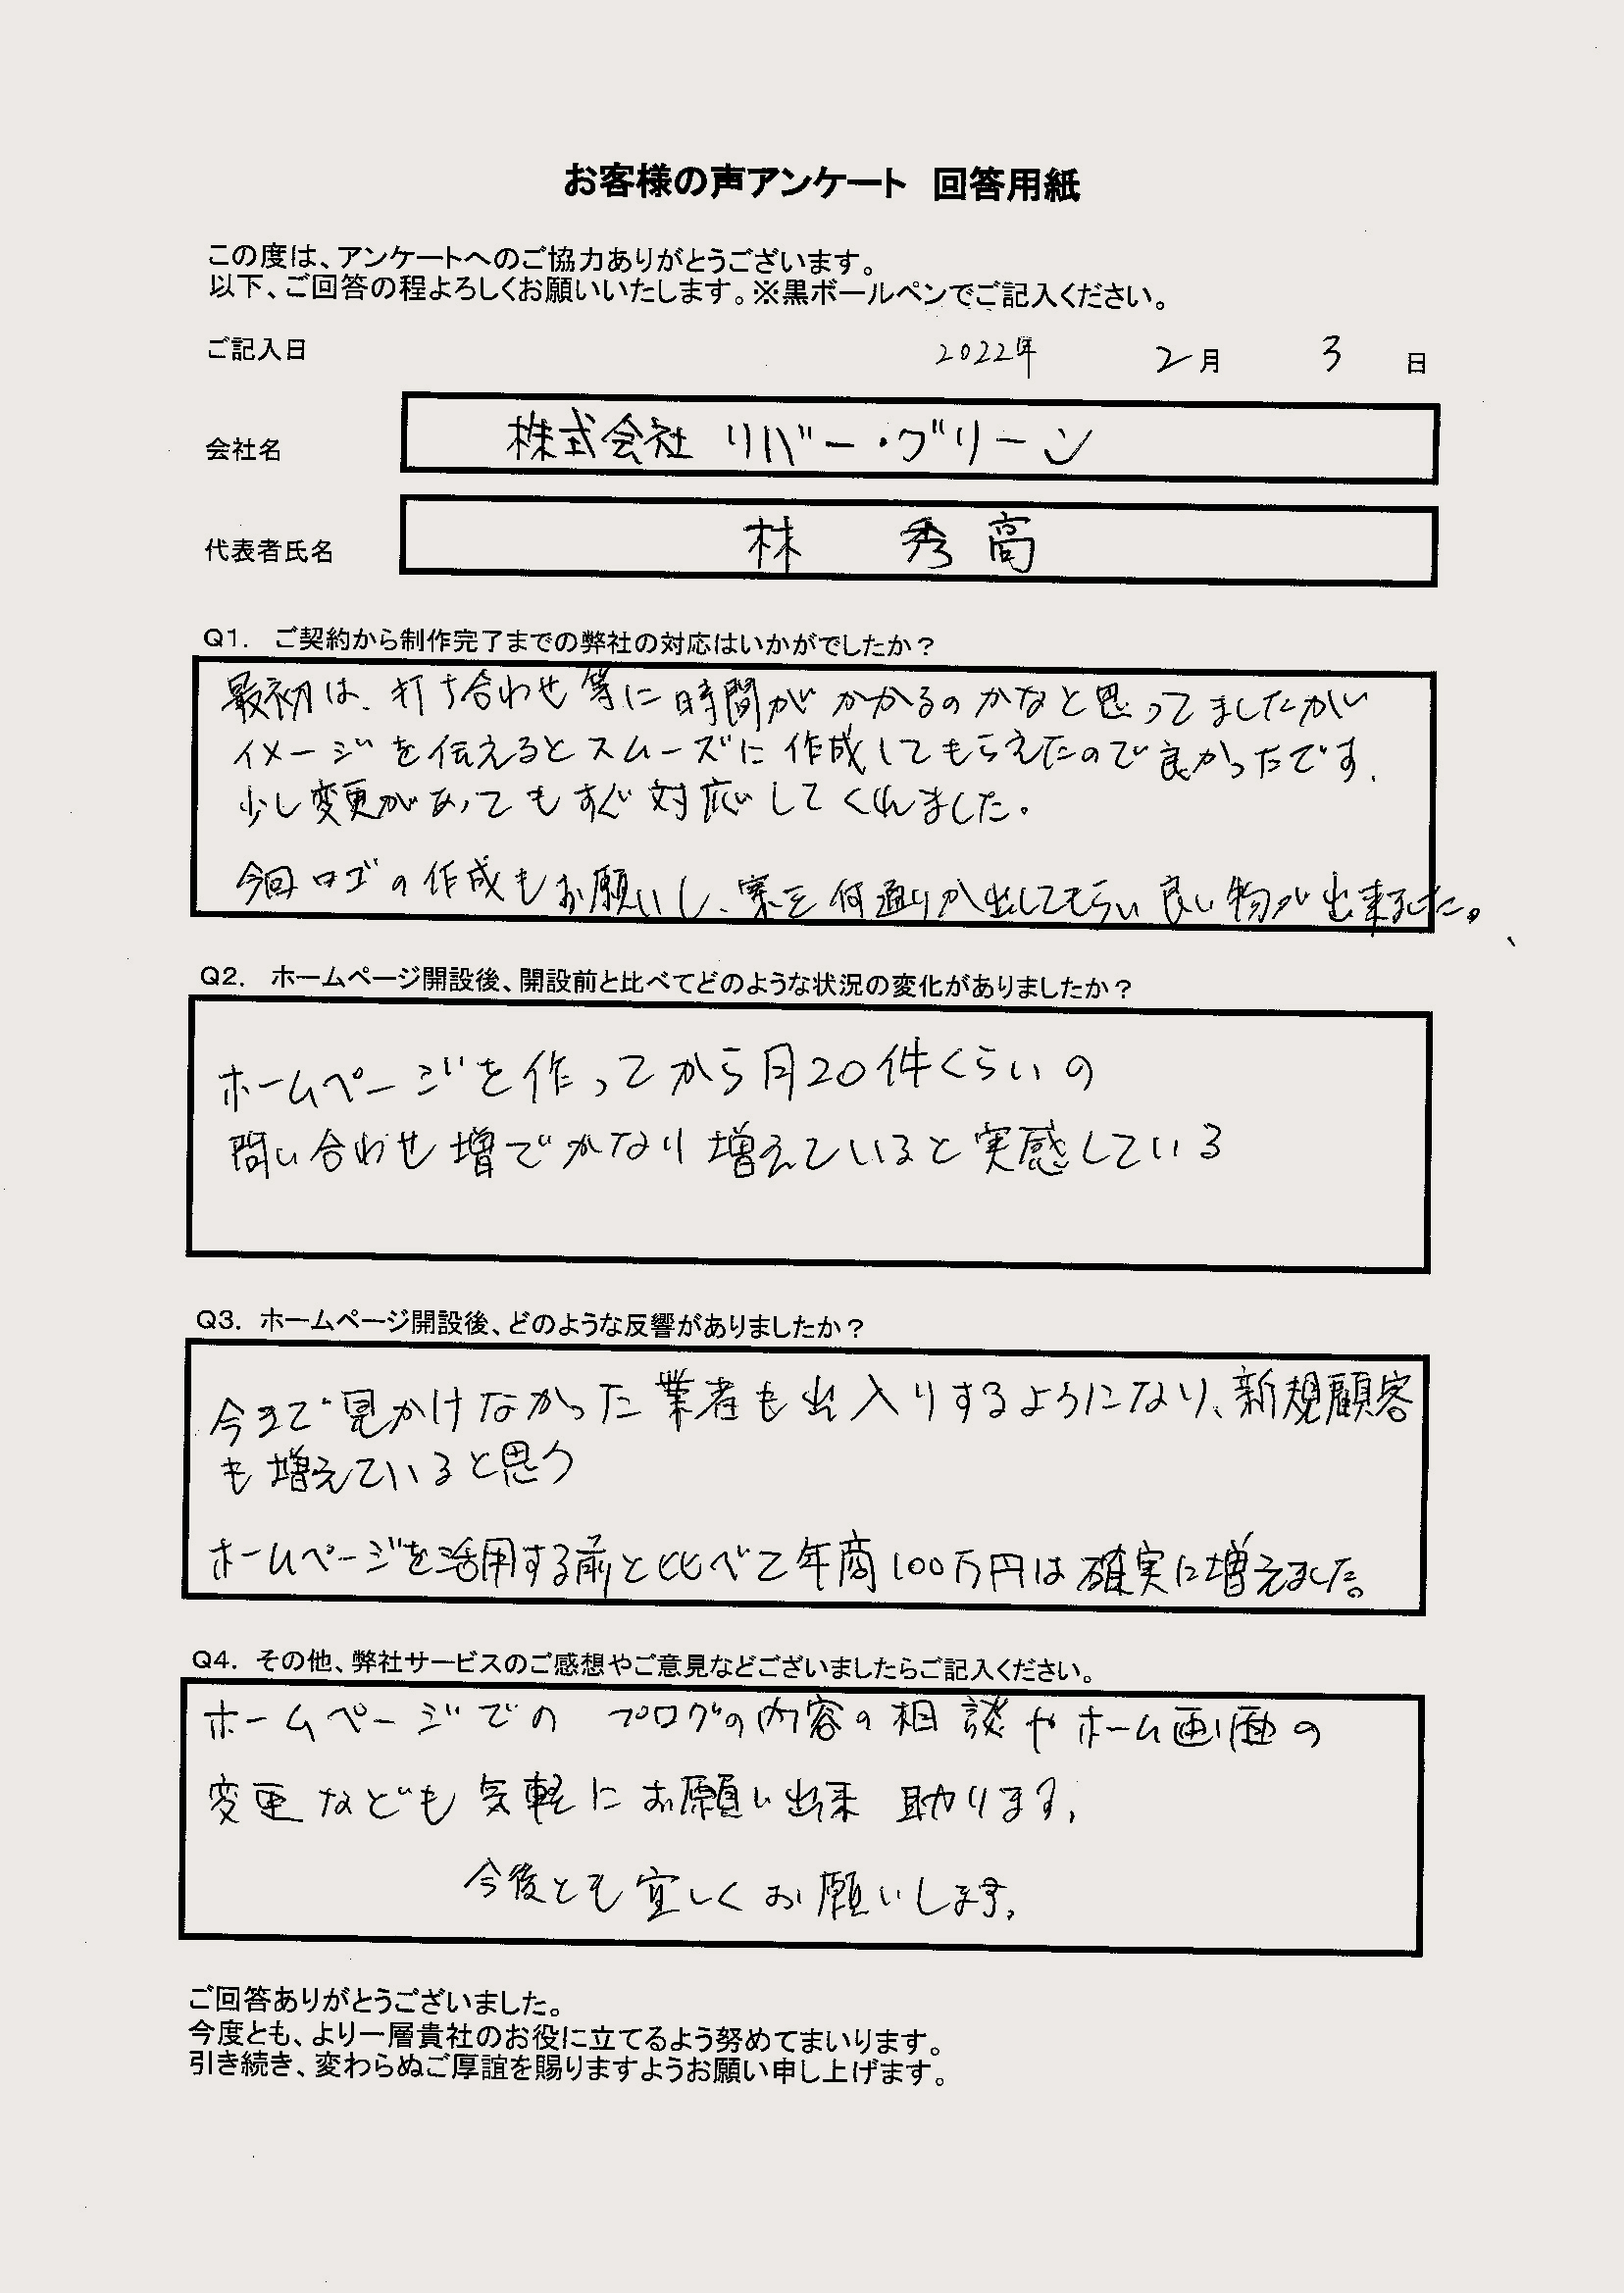 お客様の声アンケート 回答用紙
この度は、アンケートへのご協力ありがとうございます。
以下、ご回答の程よろしくお願いいたします。※黒ボールペンでご記入ください。
ご記入日 2022年 2月 3日
会社名 株式会社 リバー・グリーン
代表者氏名 林 秀高
Q1. ご契約から制作完了までの弊社の対応はいかがでしたか？
最初は、打ち合わせ等に時間がかかるのかなと思ってましたがい
イメージを伝えるとスムーズに作成してもらえたので良かったです。
少し変更があってもすぐ対応してくれました。
今回ロゴの作成もお願いし、案を何通りか出してもらい良い物が出来ました。
Q2. ホームページ開設後、開設前と比べてどのような状況の変化がありましたか？
ホームページを作ってから月20件くらいの
問い合わせ増でかなり増えていると実感している
Q3. ホームページ開設後、どのような反響がありましたか？
今まで見かけなかった業者も出入りするようになり、新規顧客
も増えていると思う
ホームページを活用する前と比べて年商100万円は確実に増えました。
Q4. その他、弊社サービスのご感想やご意見などございましたらご記入ください。
ホームページでの ブログの内容の相談やホーム画面の
変更なども気軽にお願い出来 助かります。
今後とも宜しくお願いします。
ご回答ありがとうございました。
今度とも、より一層貴社のお役に立てるよう努めてまいります。
引き続き、変わらぬご厚誼を賜りますようお願い申し上げます。